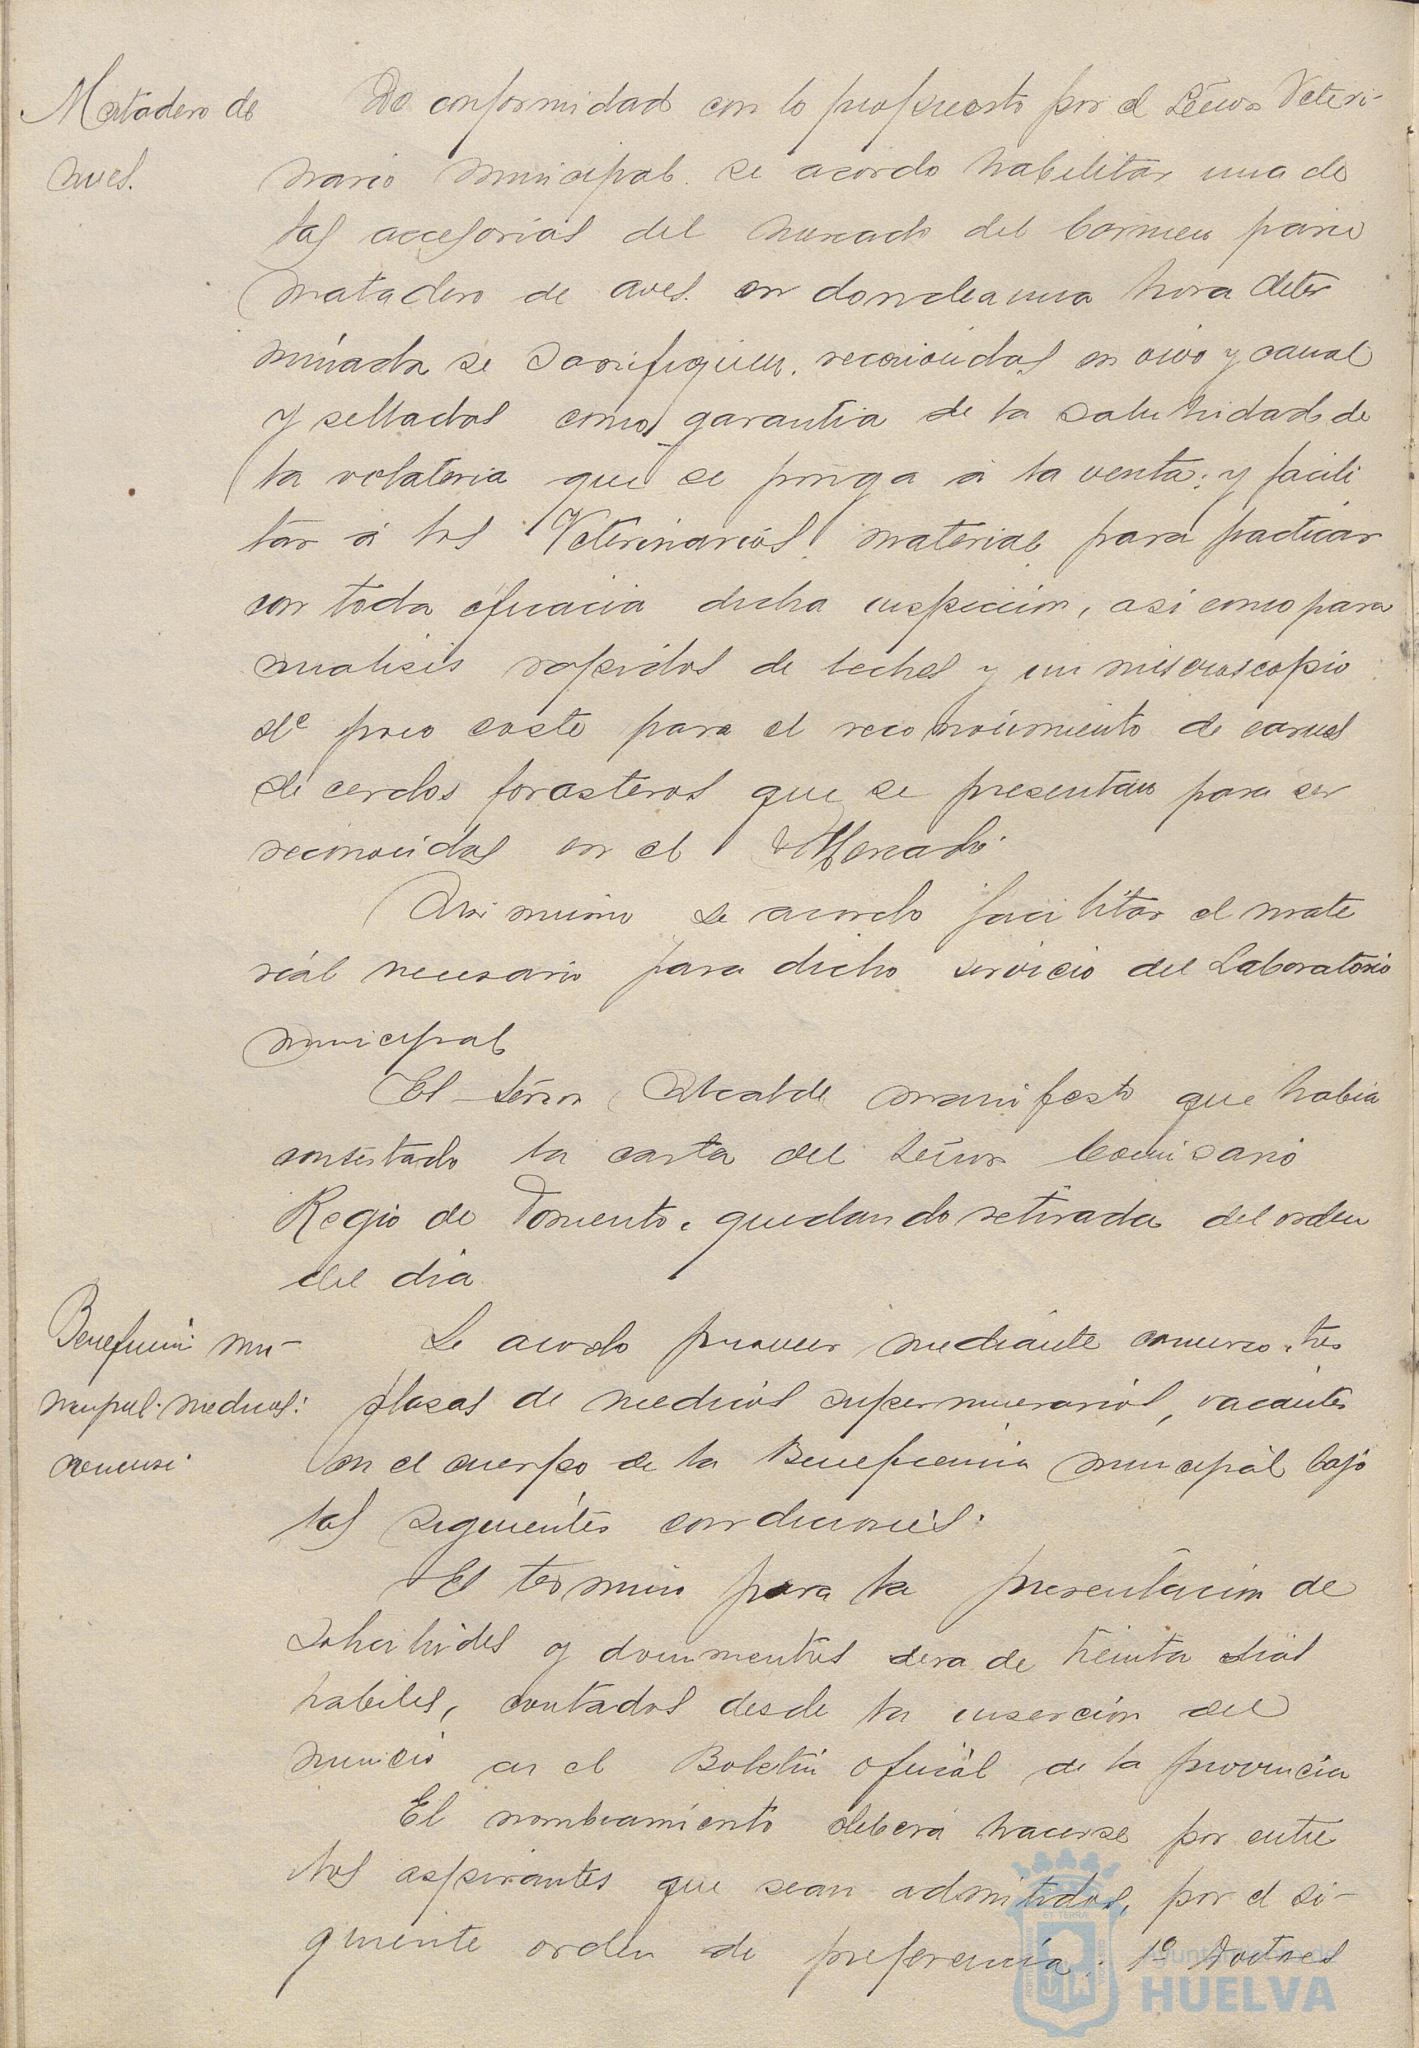 Matadero de
aves.
De conformidad con lo propuesto por el Señor Veteri-
nario municipal se acordo habilitar una de
las accesorias del mercado del Carmen para
matadero de aves en donde a una hora deter
minada se sacrifiquen, reconocidas en vivo y canal
y selladas como garantia de la salubridad de
la volateria que se ponga á la venta; y facili
tar á los Veterinarios material para practicar
con toda eficacia dicha inspeccion, asi como para
analisis rapidos de leches y un miscroscopio
de poco coste para el reconocimiento de carnes
de cerdos forasteros que se presentan para ser
reconocidas en el Mercado.
Asi mismo se acordo facilitar el mate
rial necesario para dicho servicio del Laboratorio
municipal
El Señor Alcalde manifesto que habia
contestado la carta del Señor Comisario
Regio de Fomento, quedando retirada del orden
del dia.
Beneficencia mu-
nicipal. medicos:
concurso.
Se acordo proveer mediante concurso tres
plazas de medicos supernumerarios, vacantes
en el cuerpo de la Beneficencia municipal bajo
las siguientes condiciones.
El termino para la presentacion de
solicitudes y documentos sera de treinta dias
habiles, contados desde la insercion del
anuncio en el Boletin oficial de la provincia
El nombramiento deberá hacerse por entre
los aspirantes que sean admitidos, por el si-
guiente orden de preferencia: 1º Doctores
Ayuntamiento de
HUELVA